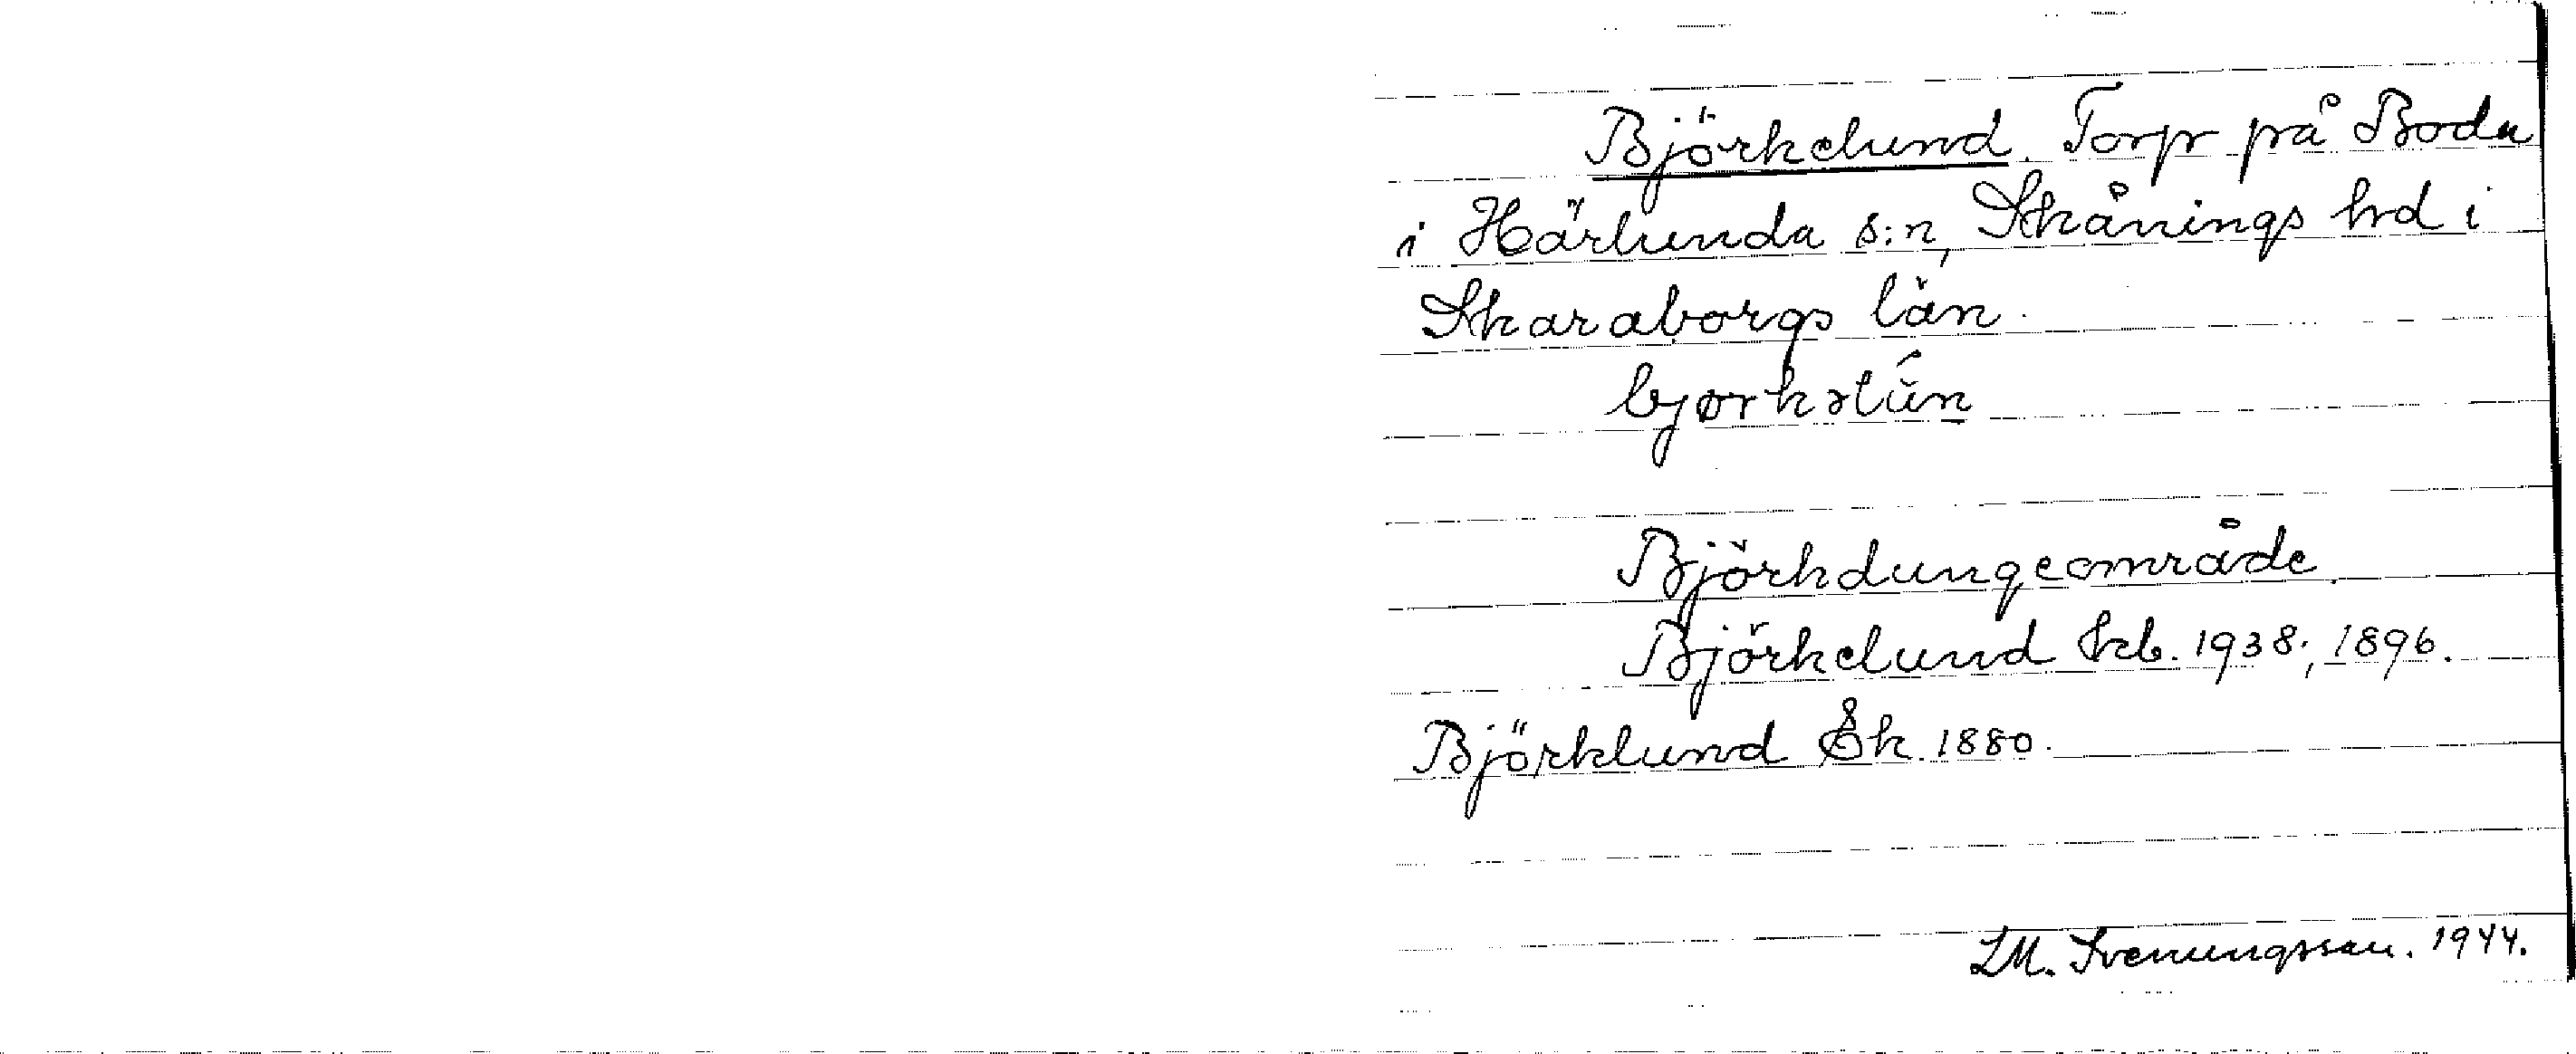 Björkelund. Torp på Boda
i Härlunda s:n, Skånings hd i
Skaraborgs län.
Björkdungeområde.
Björkelund kb. 1938; 1896.
Björklund Ek 1880.
LM. Svenungsson. 1944.